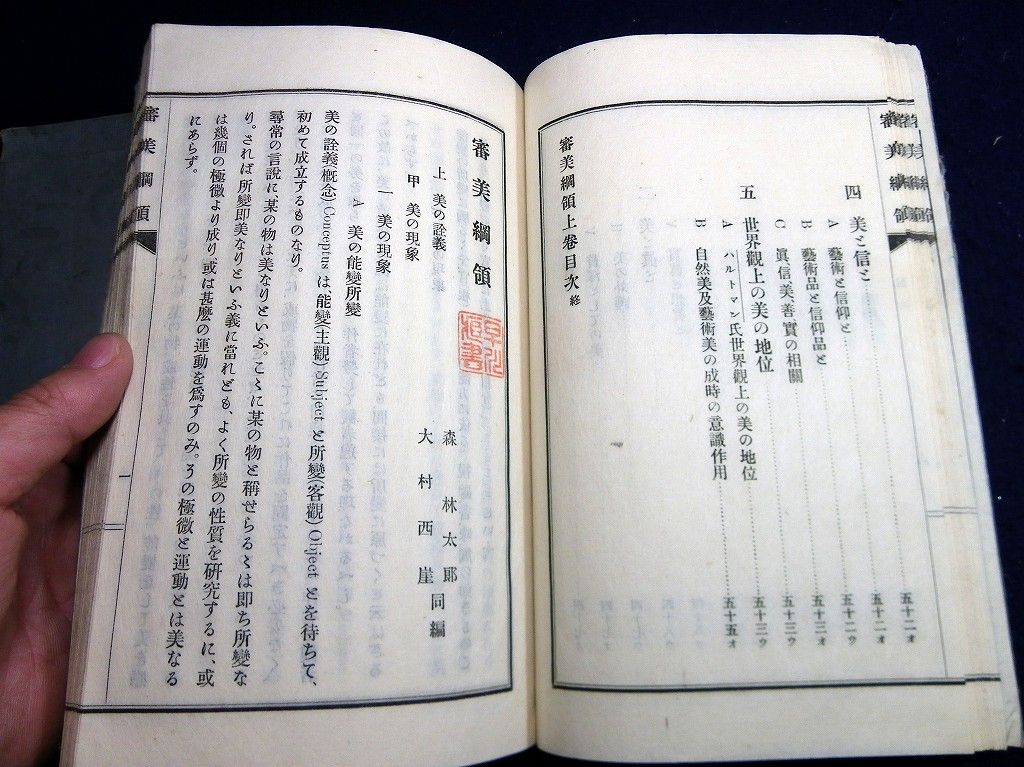 四 美と信と……五十二オ
A 藝術と信仰と……五十二オ
B 藝術品と信仰品と……五十二ウ
C 眞、信、美、善、實の相關……五十二オ
五 世界觀上の美の地位……五十三ウ
A ハルトマン氏世界觀上の美の地位……五十三ウ
B 自然美及藝術美の成時の意識作用……五十五オ
審美綱領上卷目次 終
審美綱領
審美綱領
森林太郎
大村西崖 同編
上 美の詮義
甲 美の現象
一 美の現象
A 美の能變所變
美の詮義(概念)Conceptusは、能變(主觀)Subjectと所變(客觀)Objectとを待ちて、
初めて成立するものなり。
尋常の言說に、某の物は美なりといふ。こゝに某の物と稱せらるゝは卽ち所變な
り。されば所變卽美なりといふ義に當れども、よく所變の性質を硏究するに、或
は幾個の極微より成り、或は甚麽の運動を爲すのみ。その極微と運動とは美なる
にあらず。
審美綱領
一